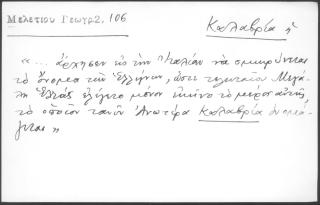 Μελετίου Γεωγρ2, 106
Καλαβρία ἡ
"... ἄρχησεν εἰς τὴν Ἰταλίαν νὰ σμικρύνεται
τὸ ὄνομα τῶν Ἑλλήνων, ὥστε τελευταῖον Μεγά-
λη Ἑλλάς ἐλέγετο μόνον ἐκεῖνο τὸ μέρος αὐτῆς,
τὸ ὁποῖον τανῦν Ἀνωτέρα Καλαβρία ὀνομά-
ζεται "